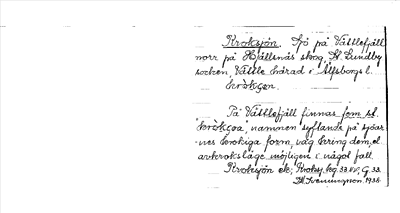 Kroksjön. Sjö på Vättlefjäll
norr på Hjällsnäs skog, St. Lundby
socken, Vättle härad i Älfsborgs l.
kròkʃøn.
På Vättlefjäll finnas fem st.
"kròkʃøa", namnen syftande på sjöar-
nes krokiga form, väg kring dem, el.
avkroksläge möjligen i något fall.
Kroksjön ek; Kroksj. kg 33 NV, G. 33.
1938